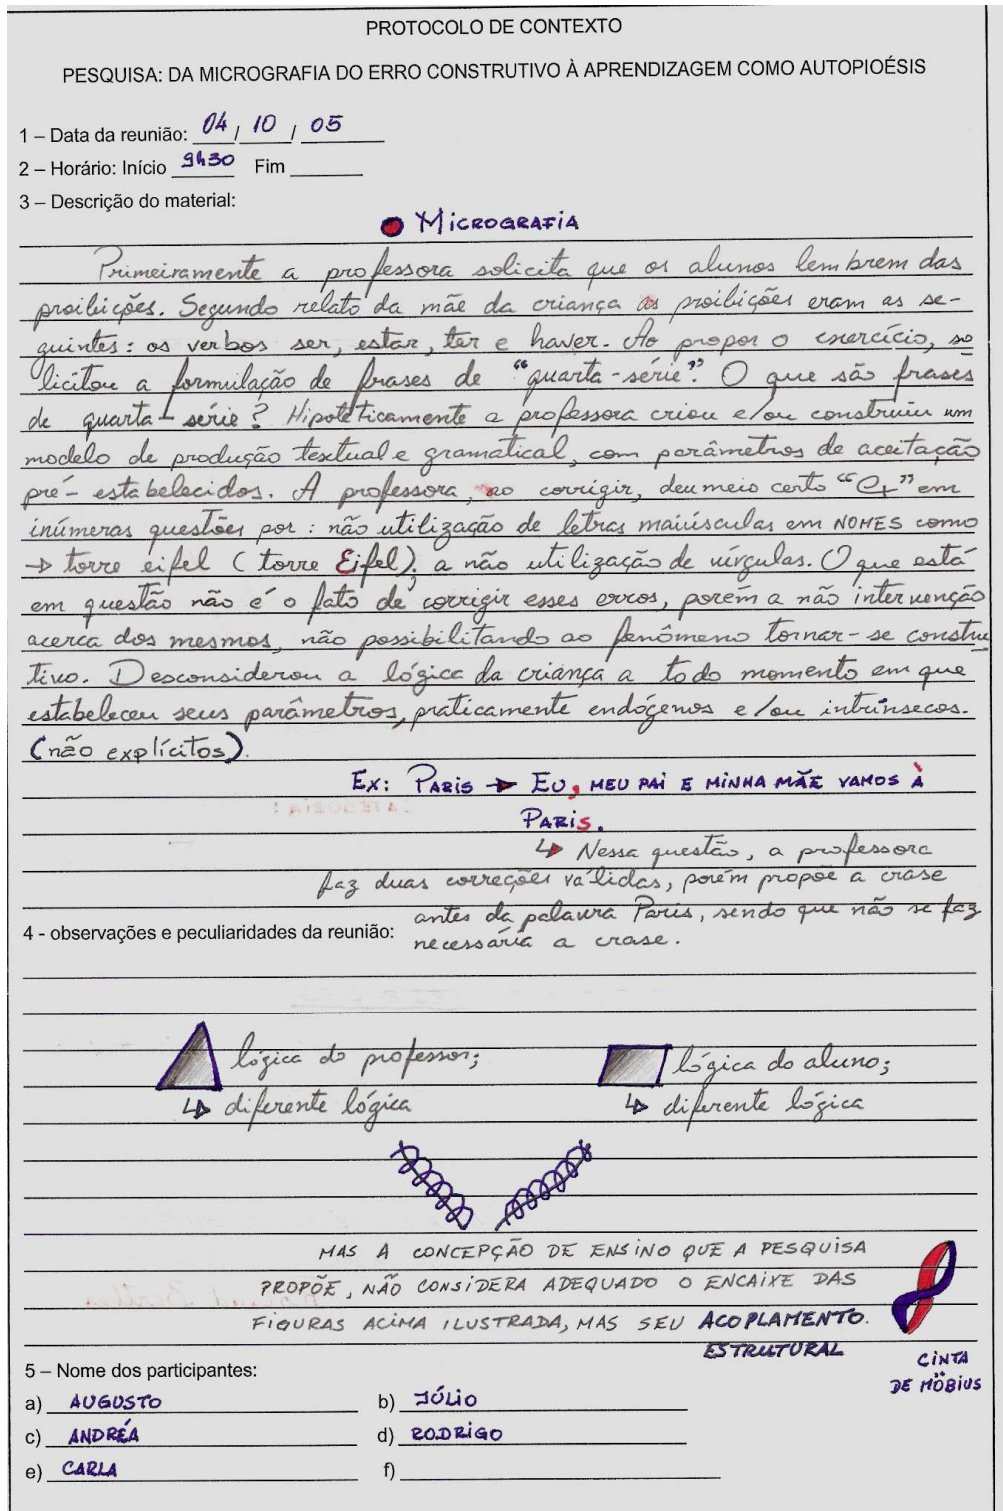 PROTOCOLO DE CONTEXTO
PESQUISA: DA MICROGRAFIA DO ERRO CONSTRUTIVO À APRENDIZAGEM COMO AUTOPIOÉSIS
1 – Data da reunião: 04 / 10 / 05
2 – Horário: Início 9h30 Fim
3 – Descrição do material:
MICROGRAFIA
Primeiramente a professora solicita que os alunos lembrem das
proibições. Segundo relato da mãe da criança as proibições eram as se-
guintes: os verbos ser, estar, ter e haver. Ao propor o exercício, so
licitou a formulação de frases de "quarta-série". O que são frases
de quarta-série? Hipoteticamente a professora criou e/ou construiu um
modelo de produção textual e gramatical, com parâmetros de aceitação
pré-estabelecidos. A professora, ao corrigir, deu meio certo em
inúmeras questões por: não utilização de letras maiúsculas em NOMES como
→ torre eifel (torre Eifel); a não utilização de vírgulas. O que está
em questão não é o fato de corrigir esses erros, porém a não intervenção
acerca dos mesmos, não possibilitando ao fenômeno tornar-se constru-
tivo. Desconsiderou a lógica da criança a todo momento em que
estabeleceu seus parâmetros, praticamente endógenos e/ou intrínsecos.
(não explícitos).
EX: PARIS → EU, MEU PAI E MINHA MÃE VAMOS À
PARIS.
↳ Nessa questão, a professora
faz duas correções válidas, porém propõe a crase
antes da palavra Paris, sendo que não se faz
necessária a crase.
4 - observações e peculiaridades da reunião:
lógica do professor; lógica do aluno;
↳ diferente lógica ↳ diferente lógica
MAS A CONCEPÇÃO DE ENSINO QUE A PESQUISA
PROPÕE, NÃO CONSIDERA ADEQUADO O ENCAIXE DAS
FIGURAS ACIMA ILUSTRADA, MAS SEU ACOPLAMENTO
ESTRUTURAL
CINTA
DE MÖBIUS
5 – Nome dos participantes:
a) AUGUSTO b) JÚLIO
c) ANDRÉA d) RODRIGO
e) CARLA f)